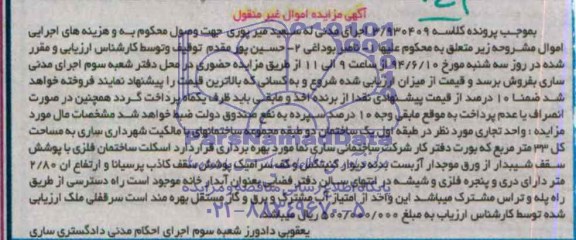 آگهی مزایده اموال غیر منقول
بموجب پرونده کلاسه ۳/۹۳۰۴۰۹ اجرای مدنی له سعید میرپوری جهت وصول محکوم به و هزینه های اجرایی
اموال مشروحه زیر متعلق به محکوم علیها بوداغی ۲- حسین پور مقدم توقیف وتوسط کارشناس ارزیابی و مقرر
شده در روز سه شنبه مورخ ۹۴/۶/۱۰ از ساعت ۹ الی ۱۱ از طریق مزایده حضوری در محل دفتر شعبه سوم اجرای مدنی
ساری بفروش برسد و قیمت از میزان ارزیابی شده شروع و به کسانی که بالاترین قیمت را پیشنهاد نمایند فروخته خواهد
شد ضمنا ۱۰ درصد از قیمت پیشنهادی نقدا از برنده اخذ و مابقی باید ظرف یکماه پرداخت گردد همچنین در صورت
انصراف یا عدم پرداخت به موقع مابقی وجه ۱۰ درصد برده به نفع صندوق دولت ضبط خواهد شد مشخصات مال مورد
مزایده: واحد تجاری مورد نظر در طبقه اول یک ساختمان دو طبقه مجموعه ساختمانهای با مالکیت شهرداری ساری به مساحت
کل ۳۳ متر مربع که بصورت دفتر کار شرکت ساختمانی ساری نما مورد بهره برداری قرار دارد اسکلت ساختمان فلزی با پوشش
سقف شیبدار از ورق موجدار آزبست بدنه دیوار گچ و کف سرامیک پوشش سقف کاذب پرسیانا و ارتفاع ان ۲/۸۰
متر دارای دری و پنجره فلزی و شیشه در انتهای سالن دفتر فضایی بعنوان آبدار خانه موجود است راه دسترسی از طریق
راه پله و تراس مشترک میباشد این واحد از امتیاز آب مشترک و برق و گاز مستقل بهره مند است سرقفلی ملک ارزیابی
شده توسط کارشناس ارزیاب به مبلغ ریال میباشد
یعقوبی دادورز شعبه سوم اجرای احکام مدنی دادگستری ساری
پایگاه اطلاع رسانی مناقصه و مزایده
۰۲۱-۸۸۳۴۹۶۷۰-۵